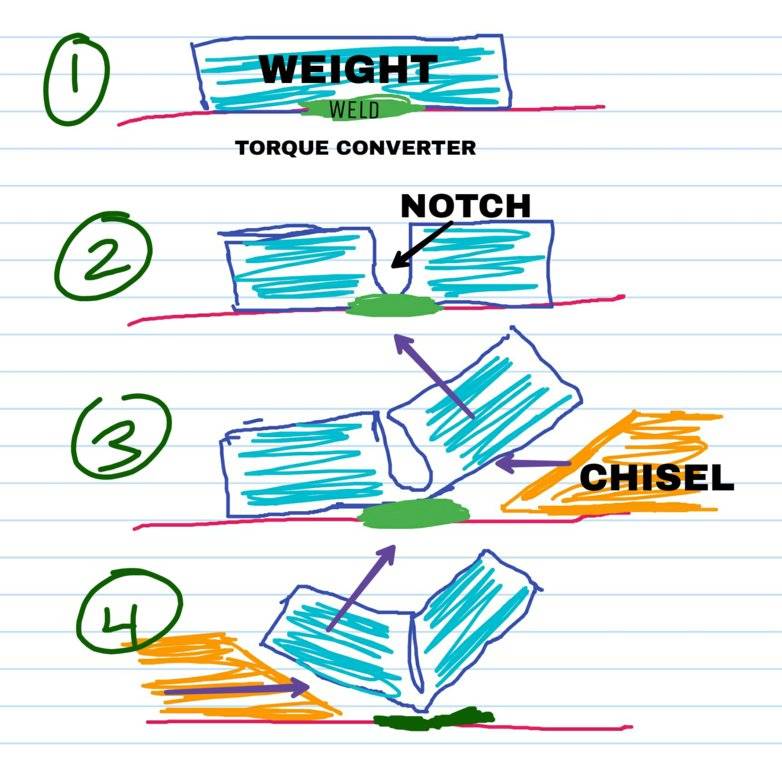 1
WEIGHT
WELD
TORQUE CONVERTER
2
NOTCH
3
CHISEL
4